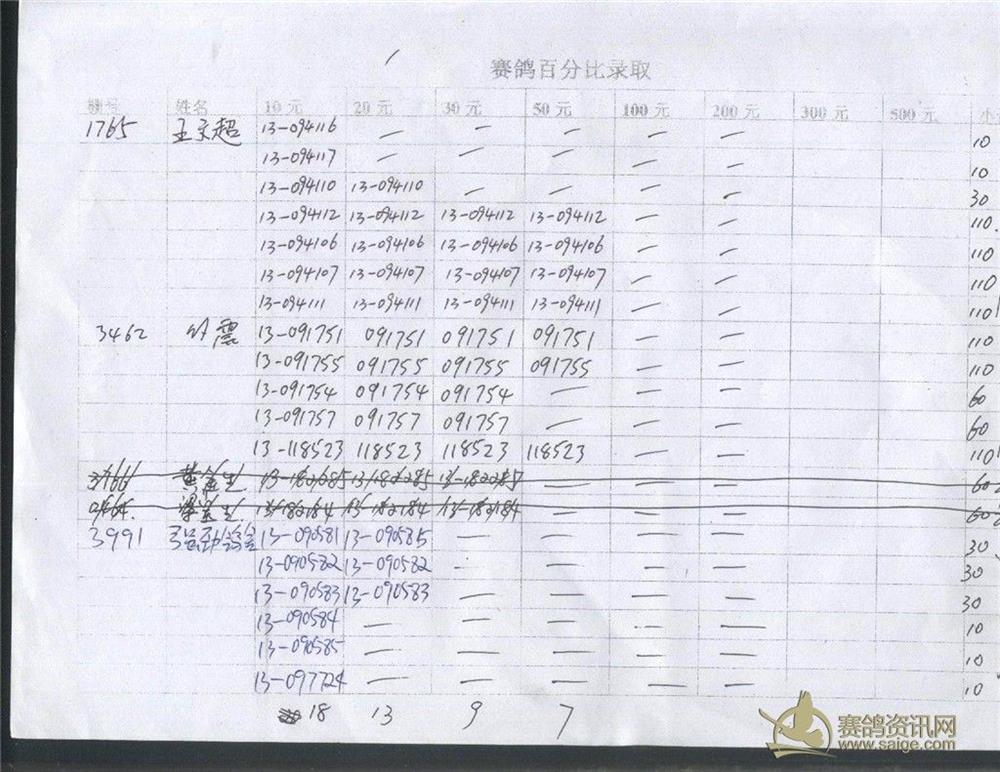 赛鸽百分比录取
棚号 姓名 10 元 20 元 30 元 50 元 100 元 200 元 300 元 500 元 小
1765 王文超 13-094116 — — — — — 10
13-094117 — — — — — 10
13-094110 13-094110 — — — — 30
13-094112 13-094112 13-094112 13-094112 — — 110
13-094106 13-094106 13-094106 13-094106 — — 110
13-094107 13-094107 13-094107 13-094107 — — 110
13-094111 13-094111 13-094111 13-094111 — — 110
3462 震 13-091751 091751 091751 091751 — — 110
13-091755 091755 091755 091755 — — 110
13-091754 091754 091754 — — — 60
13-091757 091757 091757 — — — 60
13-118523 118523 118523 118523 — — 110
— — — 60
13-182184 13-182184 13-182184 — — — 60
3991 13-090581 13-090585 — — — — 30
13-090582 13-090582 — — — — 30
13-090583 13-090583 — — — — 30
13-090584 — — — — — 10
13-090585 — — — — — 10
13-097724 — — — — — 10
18 13 9 7
赛鸽资讯网
www.saige.com